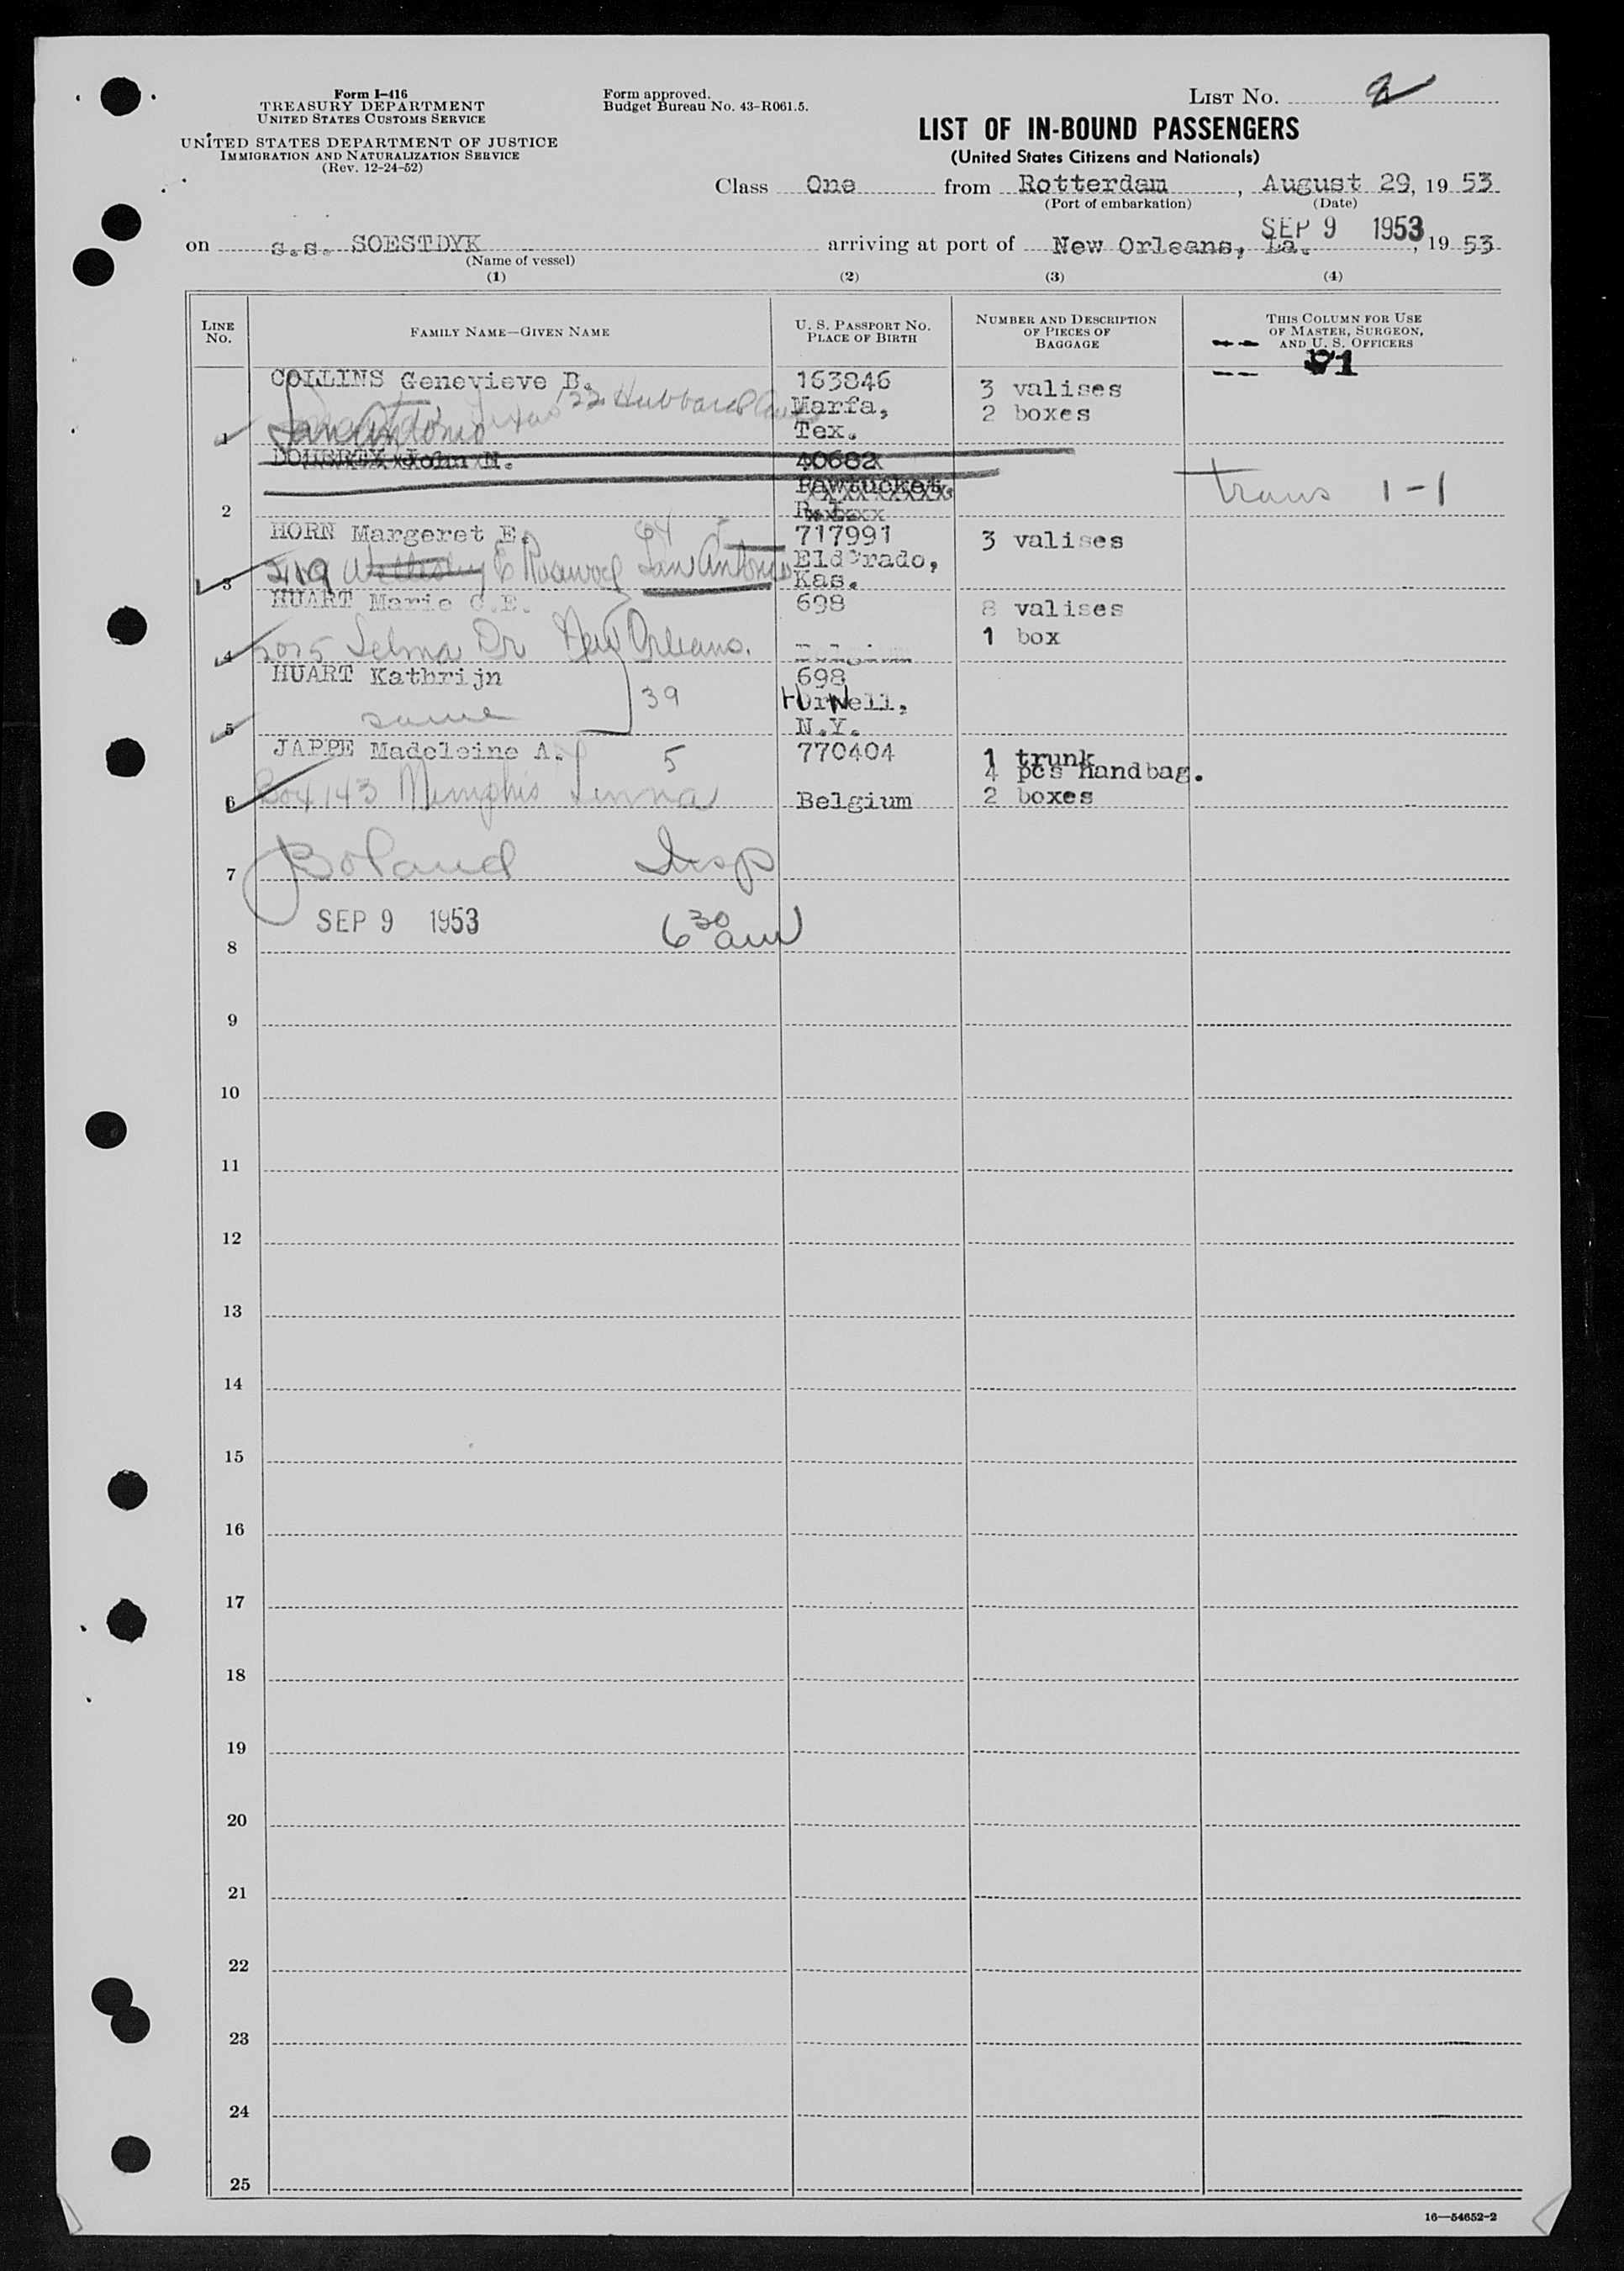 Form I-416
TREASURY DEPARTMENT
UNITED STATES CUSTOMS SERVICE
UNITED STATES DEPARTMENT OF JUSTICE
IMMIGRATION AND NATURALIZATION SERVICE
(Rev. 12-24-52)
Form approved.
Budget Bureau No. 43-R061.5.
LIST NO. 2
LIST OF IN-BOUND PASSENGERS
(United States Citizens and Nationals)
Class One from Rotterdam, August 29, 19 53
(Port of embarkation) (Date)
SEP 9 1953
on s.s. SOESTDYK arriving at port of New Orleans, La., 19 53
(Name of vessel)
(1) (2) (3) (4)
LINE NO. FAMILY NAME—GIVEN NAME U. S. PASSPORT NO. PLACE OF BIRTH NUMBER AND DESCRIPTION OF PIECES OF BAGGAGE THIS COLUMN FOR USE OF MASTER, SURGEON, AND U. S. OFFICERS
COLLINS Genevieve B. 163846 3 valises
122 Hubbard Marfa, 2 boxes
1 San Antonio Texas Tex.
DOHERTY John N. 40682
Pawtucket, trans 1-1
2 R.I.
HORN Margeret E. 64 717991 3 valises
419 E San Antonio Eldorado,
3 Kas.
HUART Marie C.E. 698 8 valises
1 box
4 Selma Dr New Orleans.
HUART Kathrijn 698
39 HorNell,
5 same N.Y.
JAPPE Madeleine A. 5 770404 1 trunk
4 pcs handbag.
6 Box 143 Memphis Belgium 2 boxes
7 Boland Insp
SEP 9 1953 6 30 am
8
9
10
11
12
13
14
15
16
17
18
19
20
21
22
23
24
25
16—54652-2